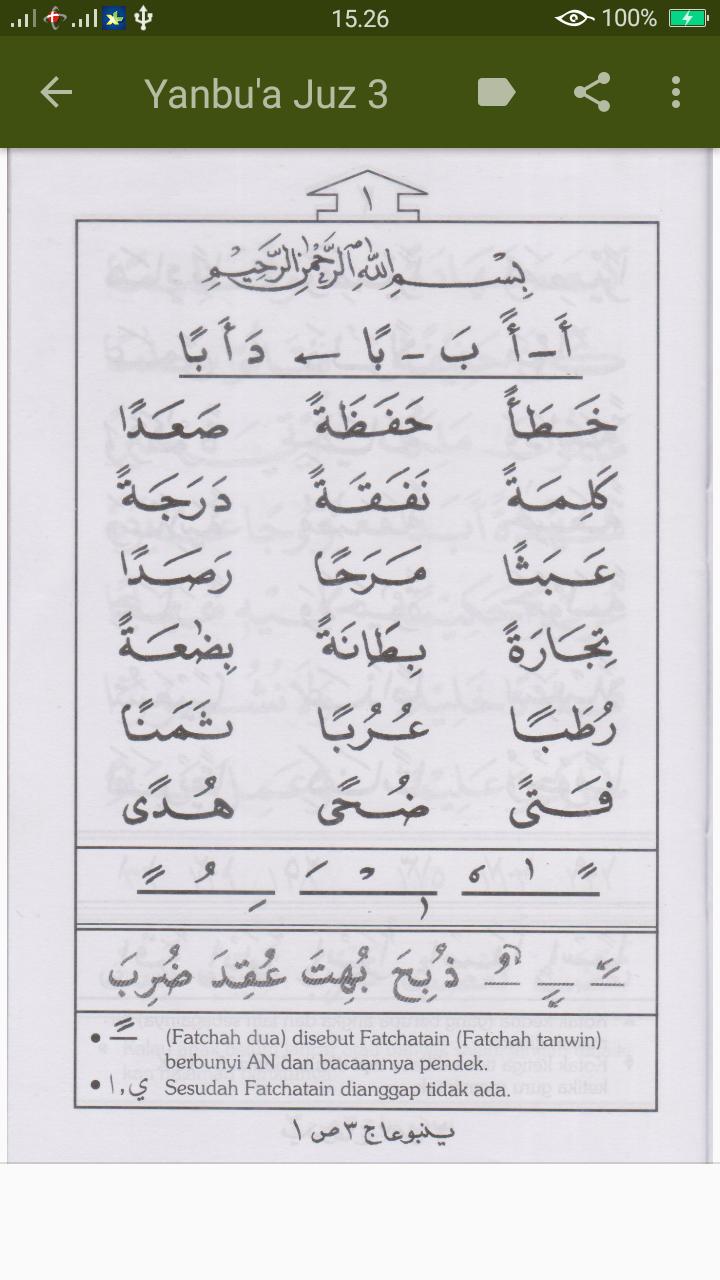 15.26 100%
Yanbu'a Juz 3
١
بِسْمِ اللّٰهِ الرَّحْمٰنِ الرَّحِيْمِ
أَ - أً بَ - بًا ← دَ أَ بًا
خَطَأً حَفَظَةً صَعَدًا
كَلِمَةً نَفَقَةً دَرَجَةً
عَبَثًا مَرَحًا رَصَدًا
تِجَارَةً بِطَانَةً بِضٰعَةً
رُطَبًا عُرُبًا ثَمَنًا
فَتًى ضُحًى هُدًى
ذُبِحَ بُهِتَ عُقِدَ ضُرِبَ
• ـً (Fatchah dua) disebut Fatchatain (Fatchah tanwin)
berbunyi AN dan bacaannya pendek.
• ا ، ي Sesudah Fatchatain dianggap tidak ada.
ينبوعا ج ٣ ص ١